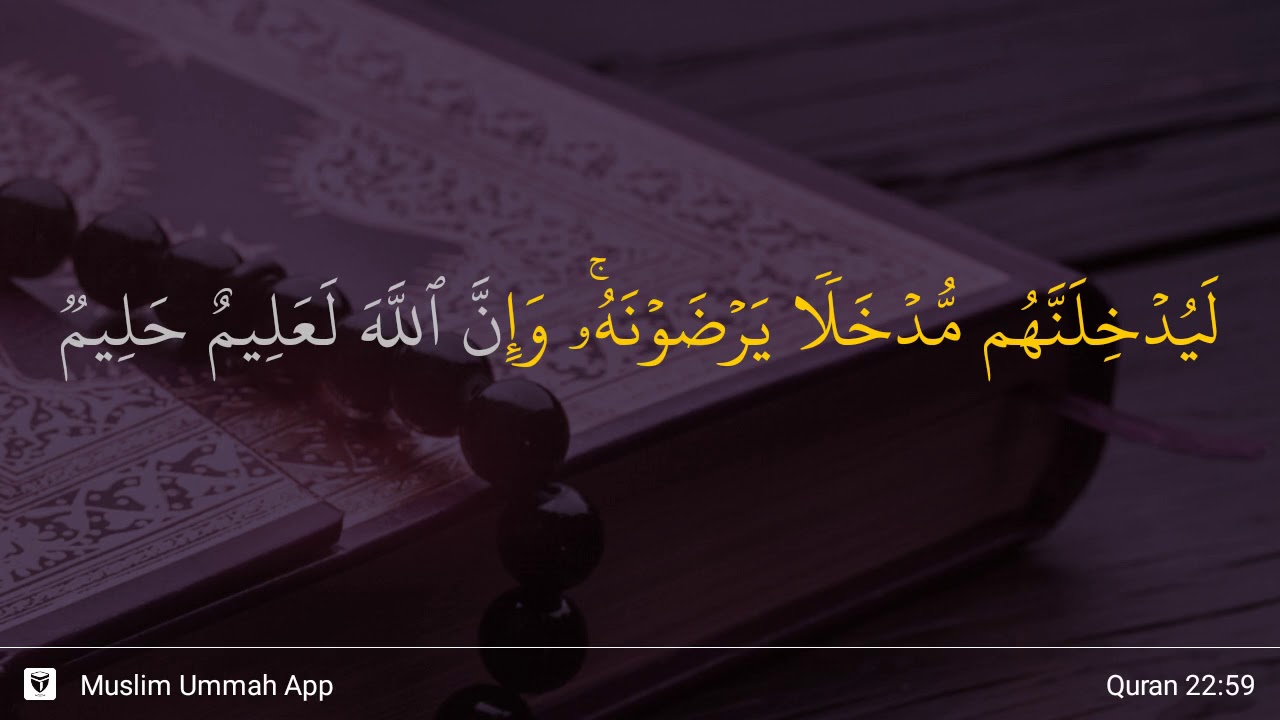 لَيُدْخِلَنَّهُم مُّدْخَلًا يَرْضَوْنَهُۥ ۚ وَإِنَّ ٱللَّهَ لَعَلِيمٌ حَلِيمٌ
Muslim Ummah App
Quran 22:59